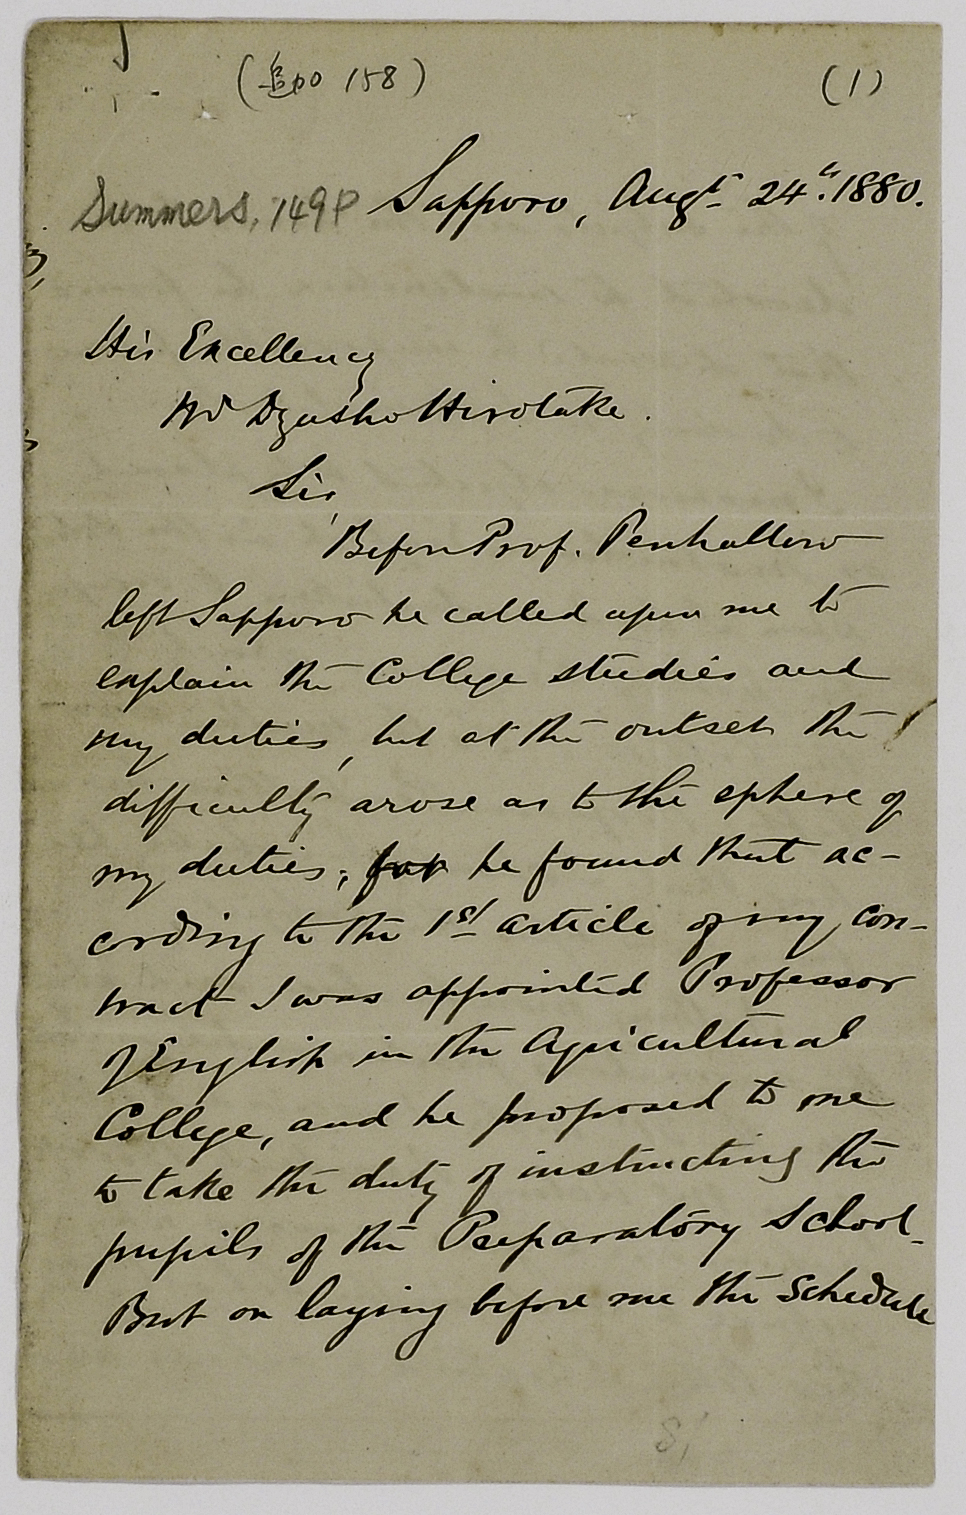 (追加 158) (1)
Summers, 749P Sapporo, Augt 24th. 1880.
His Excellency
Mr Dzusho Hirotake.
Sir,
Before Prof. Penhallow
left Sapporo he called upon me to
explain the College studies and
my duties, but at the outset the
difficulty arose as to the sphere of
my duties; for he found that ac-
cording to the 1st article of my con-
tract I was appointed Professor
of English in the Agricultural
College, and he proposed to me
to take the duty of instructing the
pupils of the Preparatory School.
But on laying before me the schedule